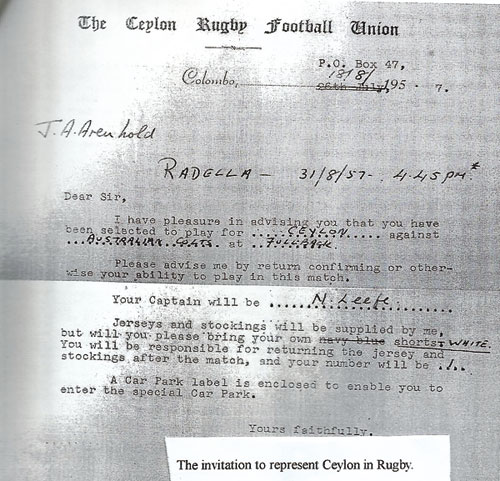 The Ceylon Rugby Football Union
P.O. Box 47,
Colombo, 18/8/ 26th July, 195 . 7.
J.A. Arenhold
RADELLA - 31/8/57 - 4.45 PM
Dear Sir,
I have pleasure in advising you that you have
been selected to play for .....CEYLON..... against
...AUSTRALIAN COLTS. at ..FULL BACK.
Please advise me by return confirming or other-
wise your ability to play in this match.
Your Captain will be ......N. Leefe.........
Jerseys and stockings will be supplied by me,
but will you please bring your own navy blue shorts WHITE.
You will be responsible for returning the jersey and
stockings after the match, and your number will be ..1..
A Car Park label is enclosed to enable you to
enter the special Car Park.
Yours faithfully.
The invitation to represent Ceylon in Rugby.